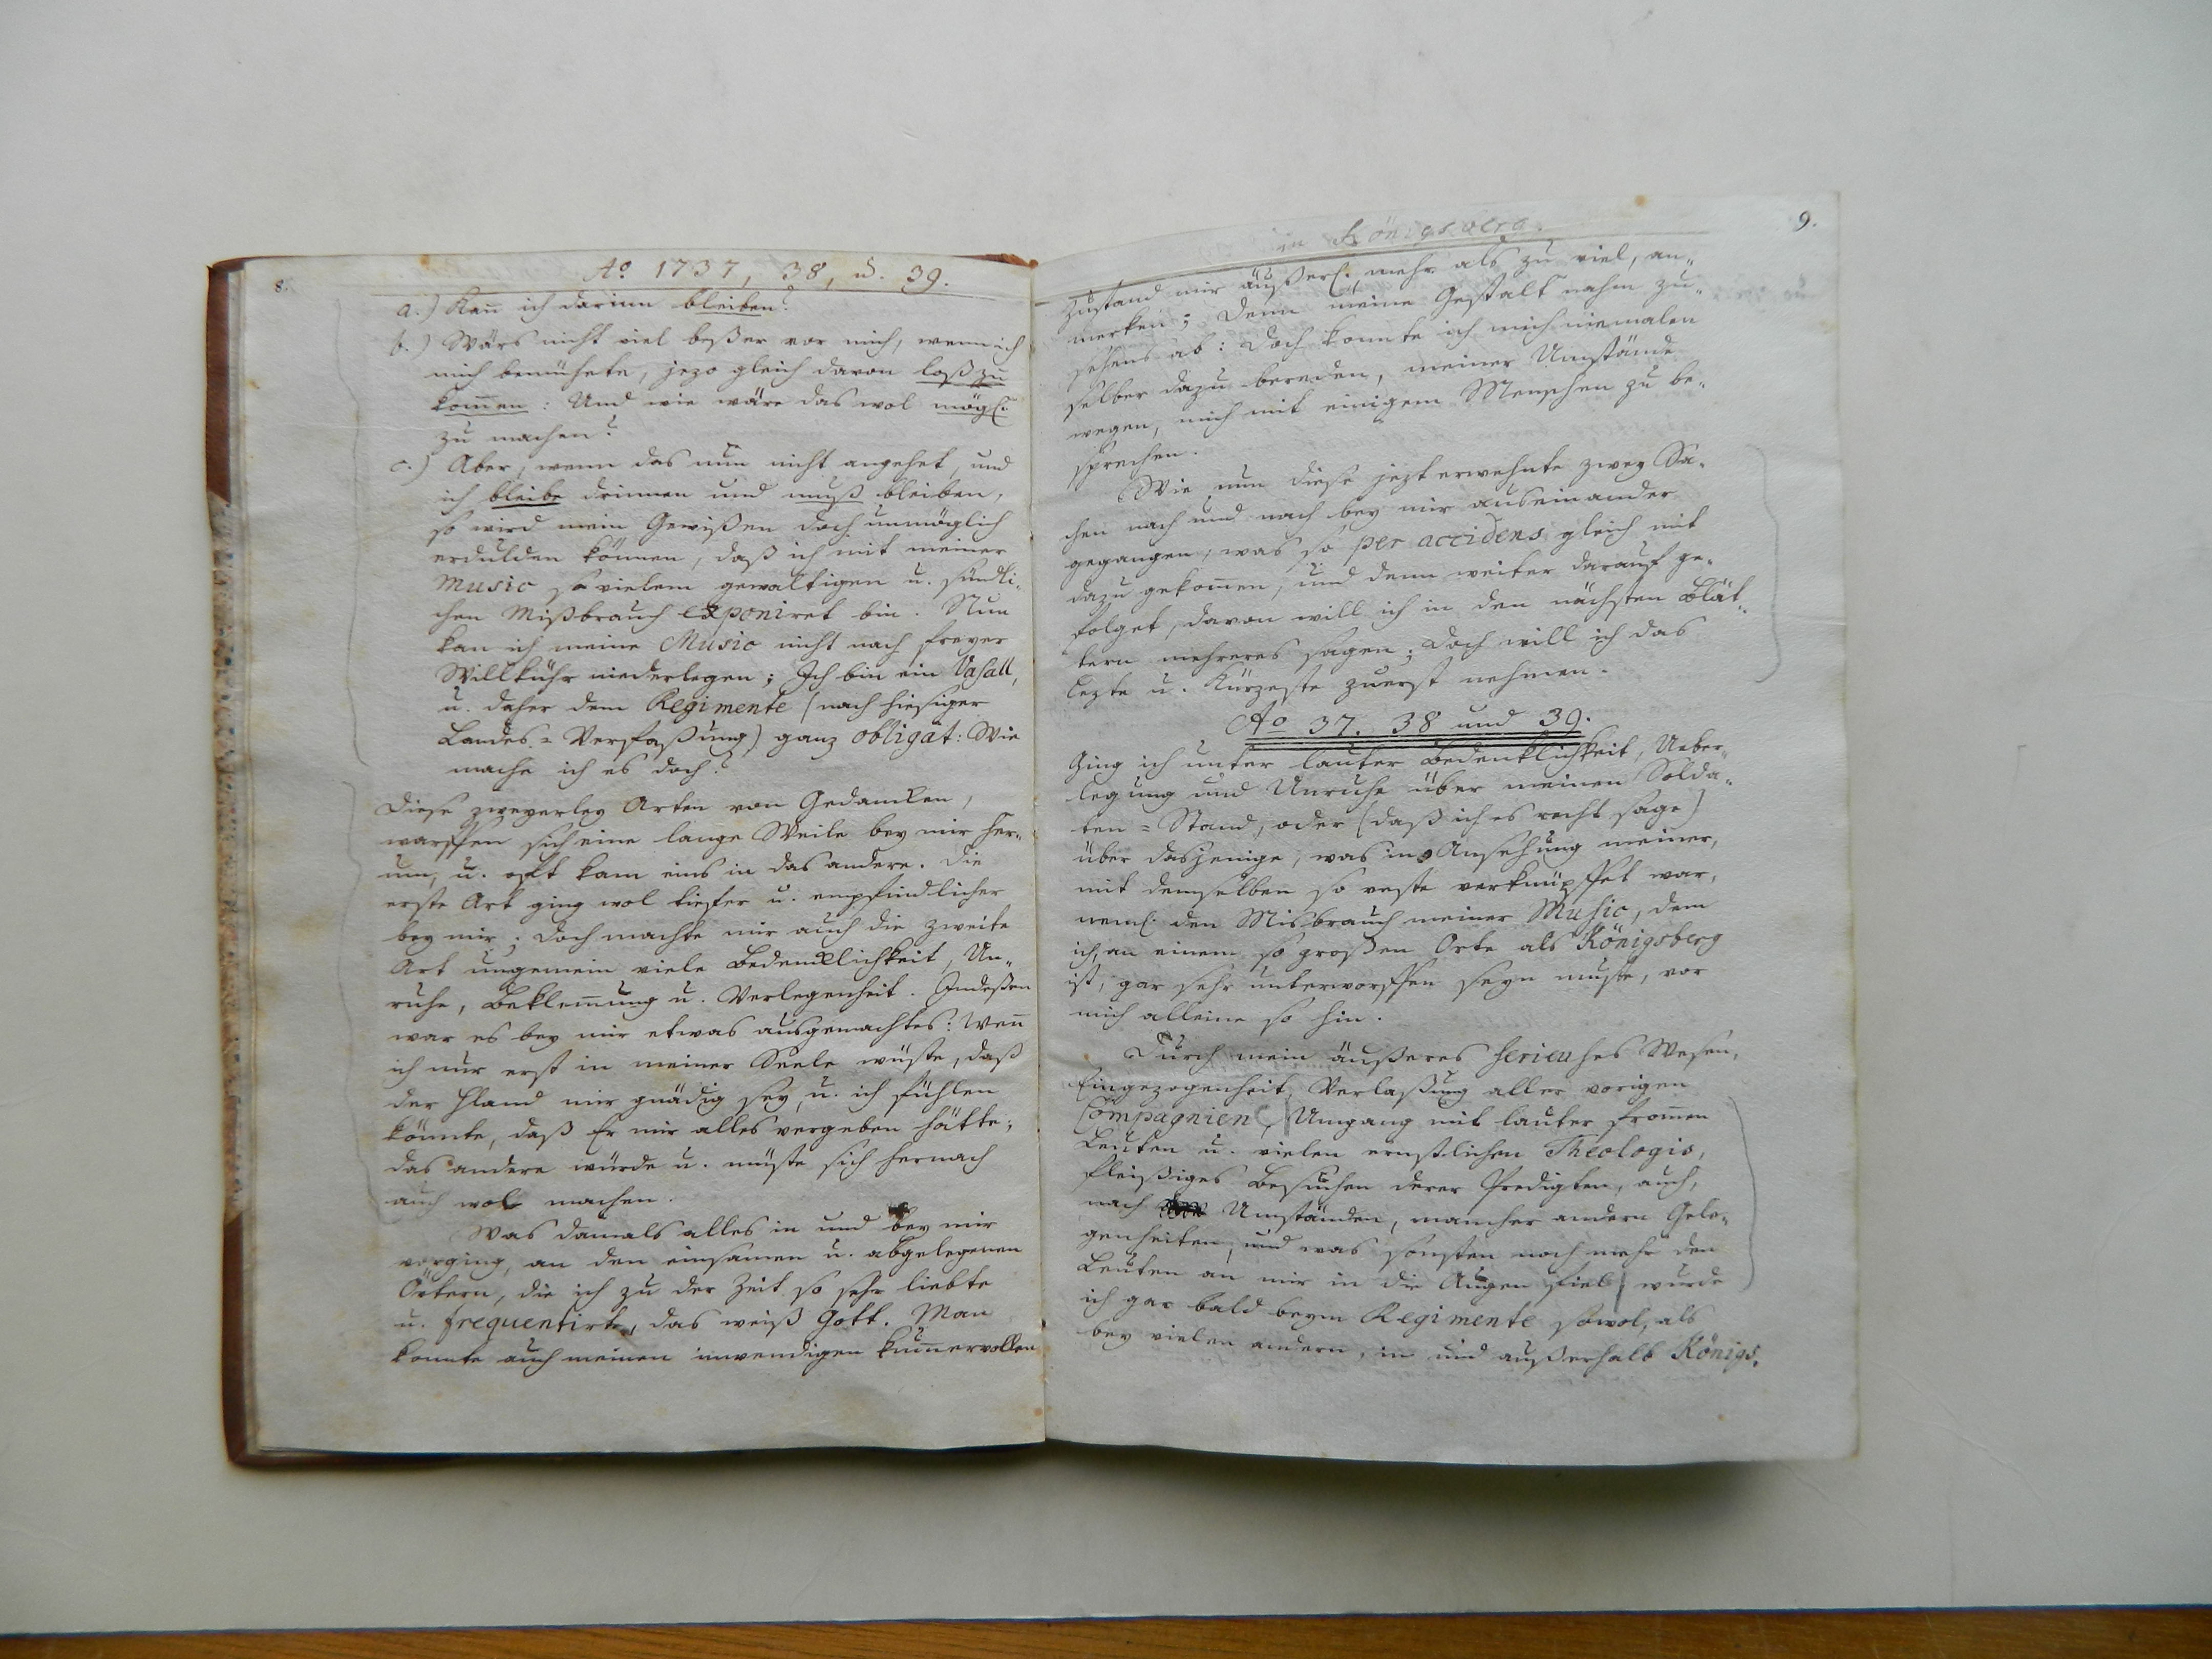 8.
Aº 1737, 38, u. 39.
a.) Kan̄ ich darinn bleiben?
b.) Wärs nicht viel beßer vor mich, wenn ich
mich bemühete, jezo gleich davon loß zu
kom̄en: Und wie wäre das wol mögl.
zu machen?
c.) Aber, wenn das nun nicht angehet, und
ich bleibe drinnen und muß bleiben,
so wird mein Gewißen doch unmöglich
erdulden können, daß ich mit meiner
Music so vielem gewaltigen u. sündli-
chen Mißbrauch exponiret bin. Nun
kan ich meine Music nicht nach freyer
Willkühr niederlegen; Ich bin ein Vasall,
u. daher dem Regimente (nach hiesiger
Landes-Verfaßung) ganz obligat: Wie
mache ich es doch?
Diese zweyerley Arten von Gedancken,
warffen sich eine lange Weile bey mir her-
um, u. offt kam eins in das andere. Die
erste Art ging wol tiefer u. empfindlicher
bey mir; Doch machte mir auch die zweite
Art ungemein viele Bedencklichkeit, Un-
ruhe, Beklem̄ung u. Verlegenheit. Indeßen
war es bey mir etwas ausgemachtes: Wen̄
ich nur erst in meiner Seele wüste, daß
der Hland mir gnädig sey, u. ich fühlen
könnte, daß Er mir alles vergeben hätte;
das andere würde u. müste sich hernach
auch wol machen.
Was damals alles in und bey mir
vorging, an den einsamen u. abgelegenen
Örtern, die ich zu der Zeit so sehr liebte
u. frequentirte, das weiß Gott. Man
konnte auch meinen inwendigen kum̄ervollen
in Königsberg.
9.
Zustand mir äußerl. mehr als zu viel, an-
merken; Denn meine Gestalt nahm zu-
sehens ab: Doch konnte ich mich niemalen
selber dazu bereden, meiner Umstände
wegen, mich mit einigem Menschen zu be-
sprechen.
Wie nun diese jezt erwehnte zwey Sa-
chen nach und nach bey mir auseinander
gegangen, was so per accidens gleich mit
dazu gekom̄en, und denn weiter darauf ge-
folget, davon will ich in den nächsten Blät-
tern mehreres sagen; Doch will ich das
lezte u. Kürzeste zuerst nehmen.
Aº 37. 38 und 39.
Ging ich unter lauter Bedenklichkeit, Ueber-
legung und Unruhe über meinen Solda-
ten-Stand, oder (daß ich es recht sage)
über dasjenige, was in Ansehung meiner,
mit demselben so veste verknüpffet war,
neml. den Misbrauch meiner Music, dem
ich, an einem so großen Orte als Königsberg
ist, gar sehr unterworffen seyn muste, vor
mich alleine so hin.
Durch mein äußeres serieuses Wesen,
Eingezogenheit, Verlaßung aller vorigen
Compagnien, Umgang mit lauter from̄en
Leuten u. vielen ernstlichen Theologis,
fleißiges Besuchen derer Predigten, auch,
nach Umständen, mancher andern Gele-
genheiten, und was sonsten noch mehr den
Leuten an mir in die Augen fiel, wurde
ich gar bald beym Regimente sowol, als
bey vielen andern, in und außerhalb Königs-